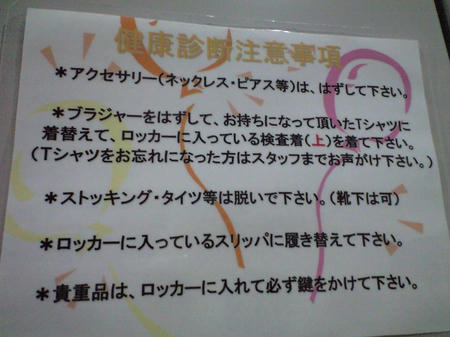 健康診断注意事項
＊アクセサリー（ネックレス・ピアス等）は、はずして下さい。
＊ブラジャーをはずして、お持ちになって頂いたTシャツに
着替えて、ロッカーに入っている検査着（上）を着て下さい。
（Tシャツをお忘れになった方はスタッフまでお声がけ下さい。）
＊ストッキング・タイツ等は脱いで下さい。（靴下は可）
＊ロッカーに入っているスリッパに履き替えて下さい。
＊貴重品は、ロッカーに入れて必ず鍵をかけて下さい。